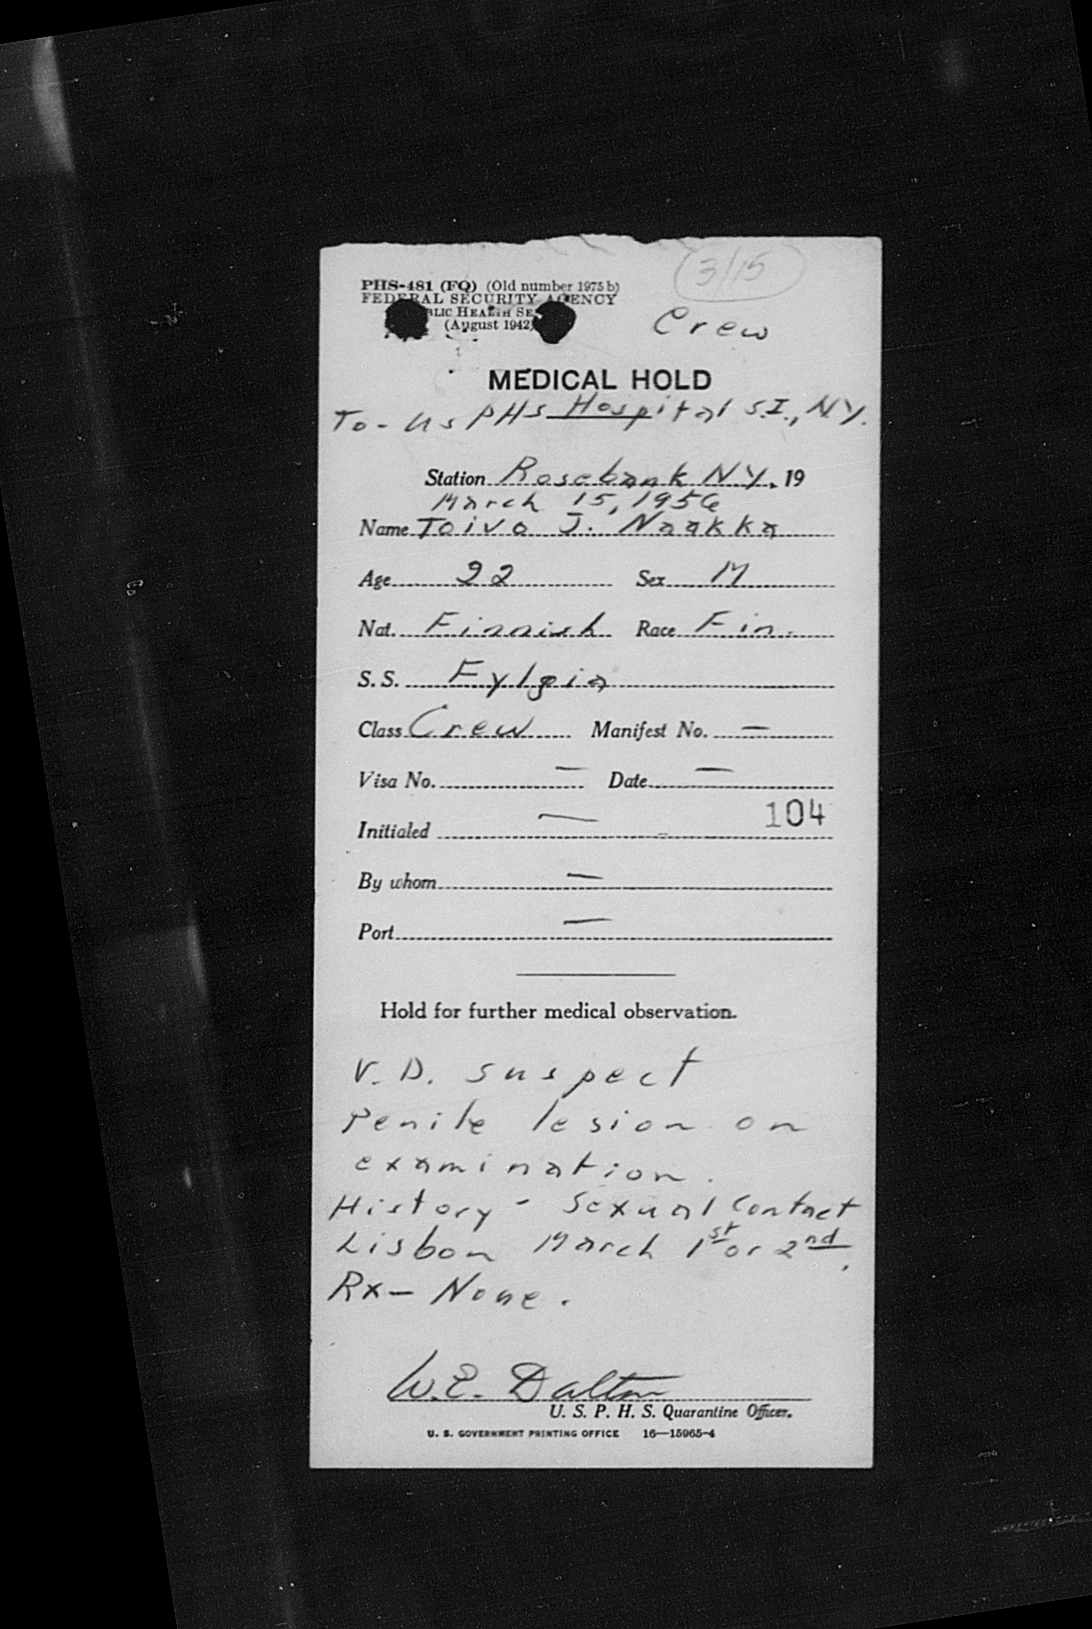 3/15
PHS-481 (FQ) (Old number 1975 b)
FEDERAL SECURITY AGENCY
BLIC HEALTH SE
(August 1942)
Crew
MEDICAL HOLD
To - US PHS Hospital S.I., N.Y.
Station Rosebank N.Y. 19
March 15, 1956
Name Toivo J. Naakka
Age 22 Sex M
Nat. Finnish Race Fin.
S.S. Fylgia
Class Crew Manifest No. —
Visa No. — Date —
Initialed — 104
By whom —
Port —
Hold for further medical observation.
V. D. suspect
Penile lesion on
examination.
History - Sexual Contact
Lisbon March 1st or 2nd.
Rx - None.
W. E. Dalton
U. S. P. H. S. Quarantine Officer.
U. S. GOVERNMENT PRINTING OFFICE 16—15965-4